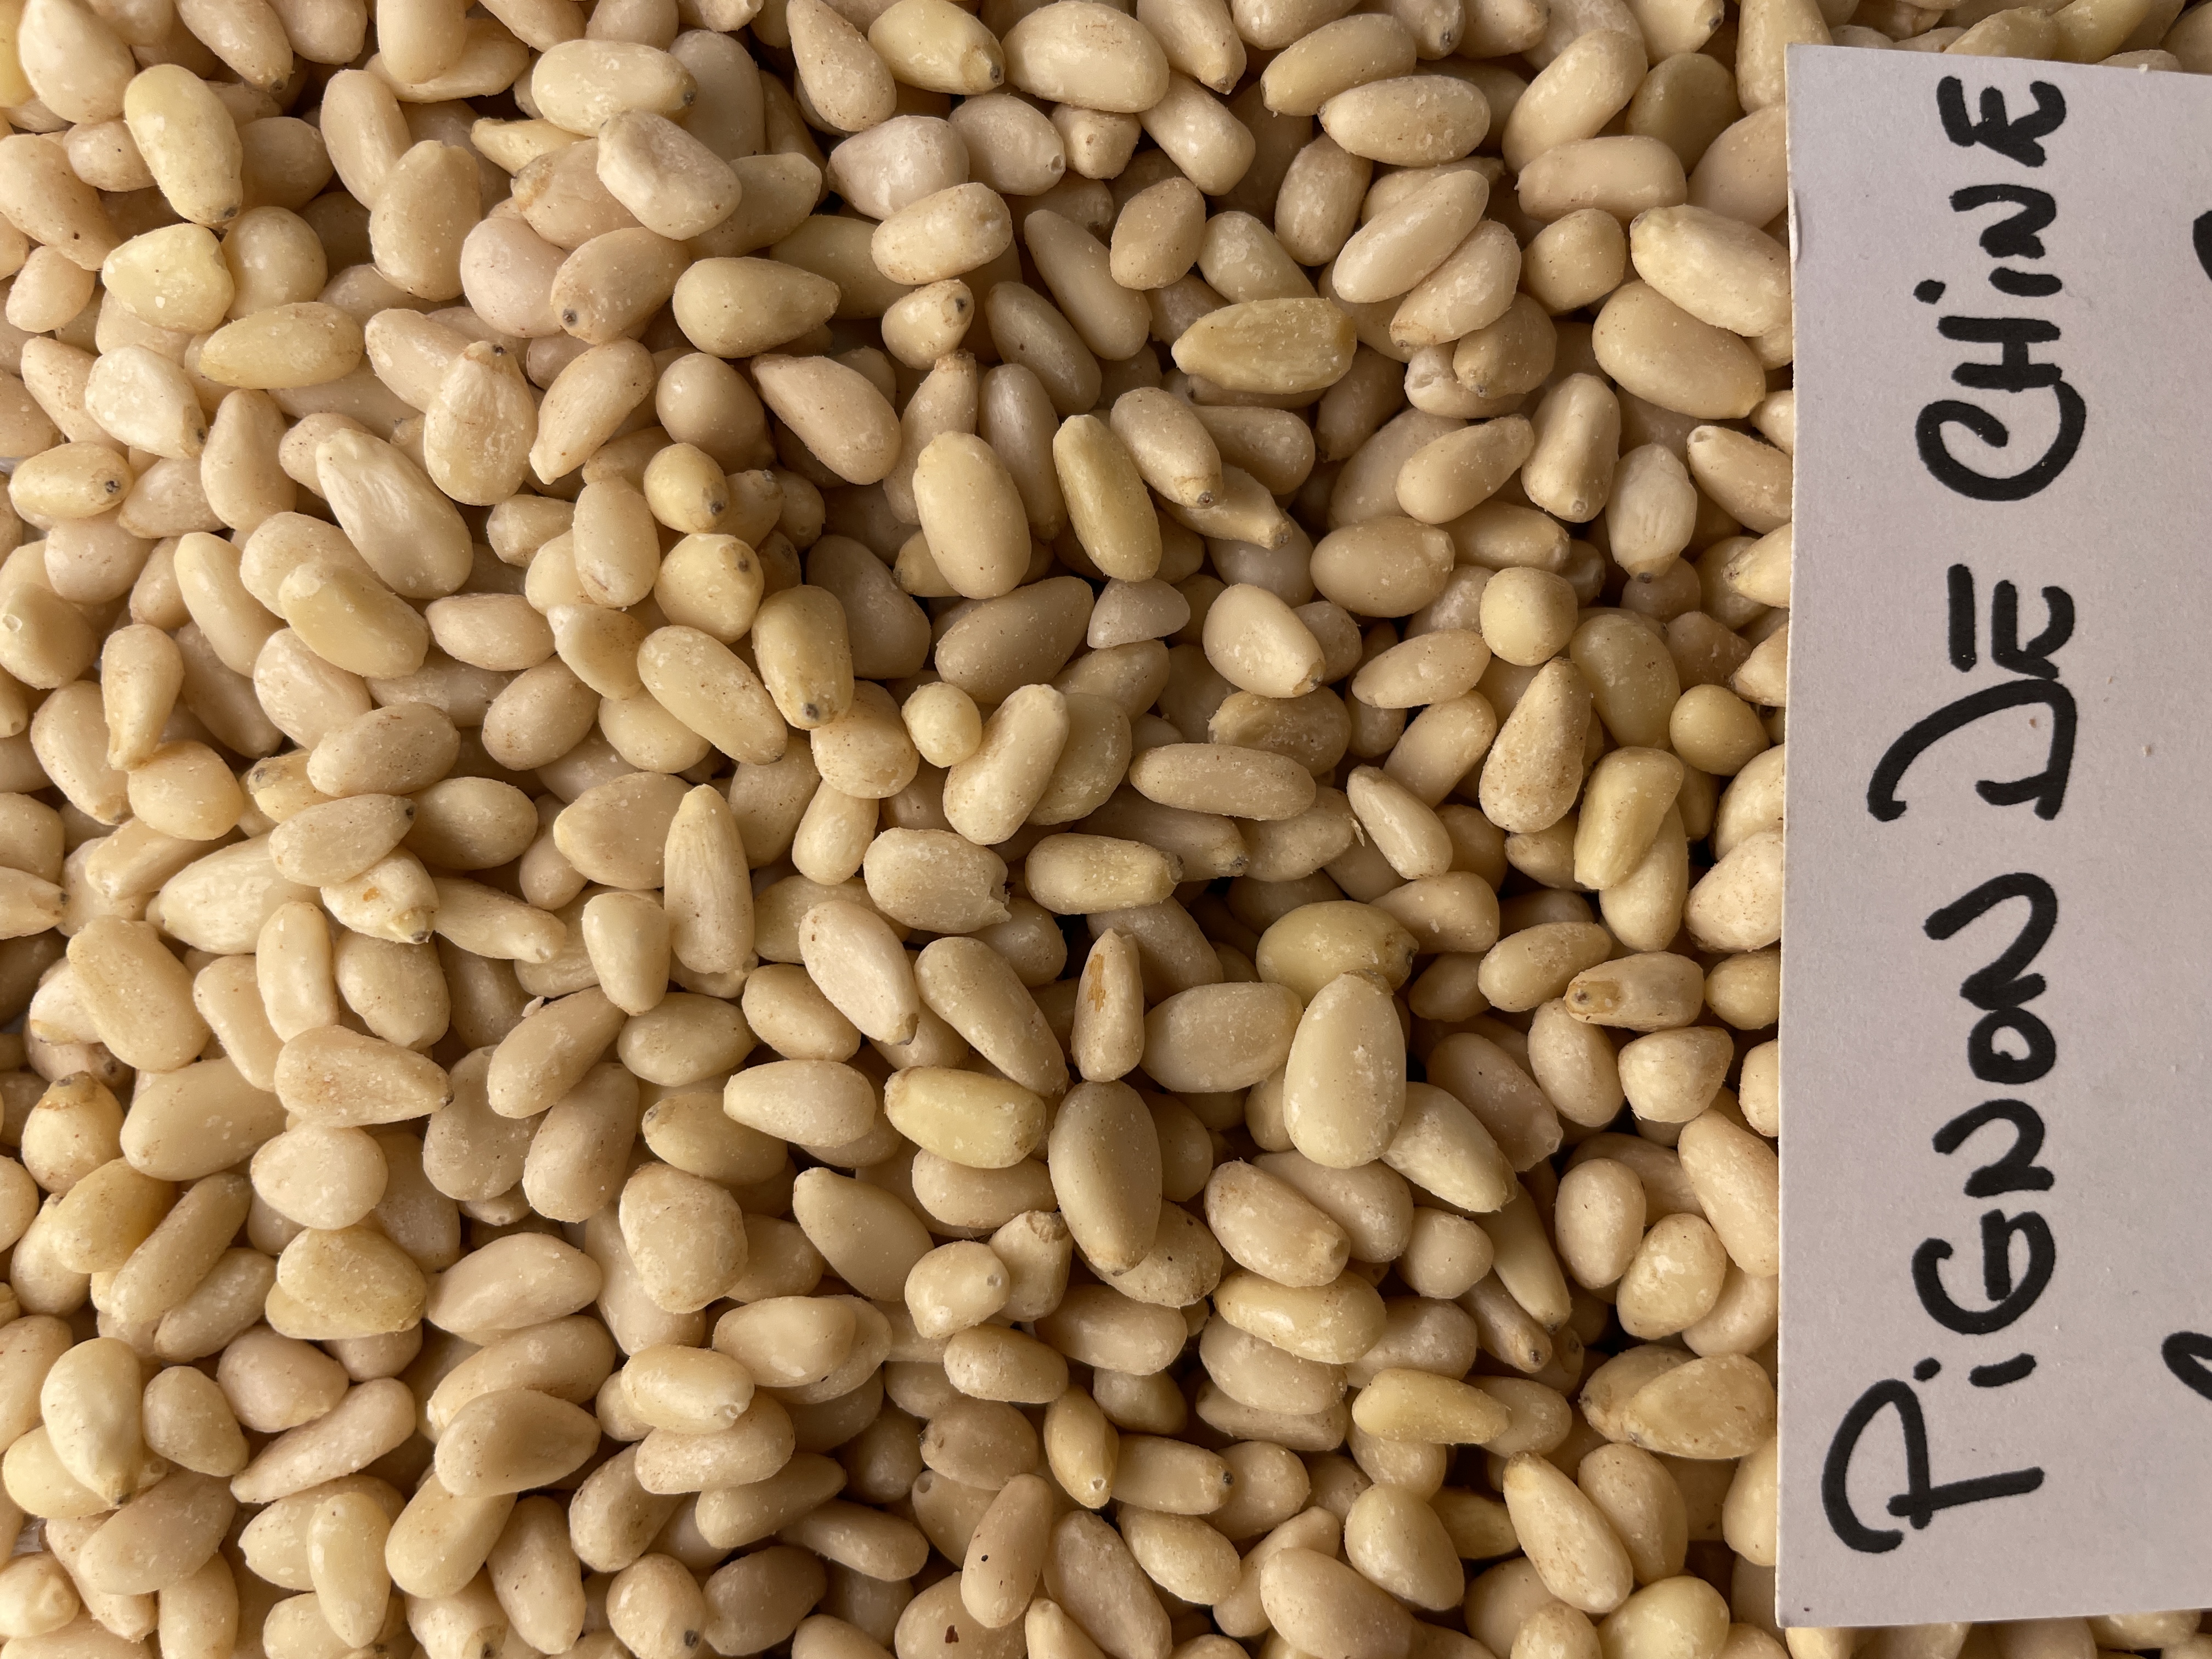 PiGNON DE CHiNE